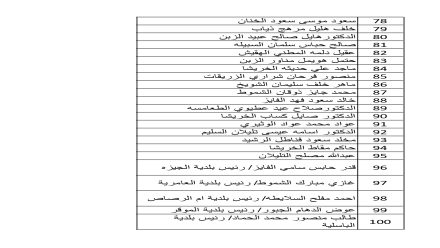 78 سعود موسى سعود الخنان
79 خلف هليل مرهج ذياب
80 الدكتور هايل صالح عبيد الزبن
81 صالح حباس سلمان السبيله
82 عقيل دلمه المطني الهقيش
83 حتمل هويمل مناور الزبن
84 ماجد علي حديثه الخريشا
85 منصور فرحان شراري الزريقات
86 ماهر خلف سليمان الشويخ
87 محمد جايز ذوقان الشموط
88 خالد سعود فهد الفايز
89 الدكتور صلاح عبد عطيوي الطعامسه
90 الدكتور صايل كساب الخريشا
91 عواد محمد عواد الوثيري
92 الدكتور اسامه عيسى تليلان السليم
93 مخلد سعود قناطل الرشيد
94 حاكم مقاط الخريشا
95 عبدالله مصلح التليلان
96 قدر حابس سامي الفايز/ رئيس بلدية الجيزه
97 غازي مبارك الشموط/ رئيس بلدية العامرية
98 احمد مفلح السلايطه/ رئيس بلدية ام الرصاص
99 عوض الدهام الجبور/ رئيس بلدية الموقر
100 طالب منصور محمد الحماد/ رئيس بلدية
الباسلية